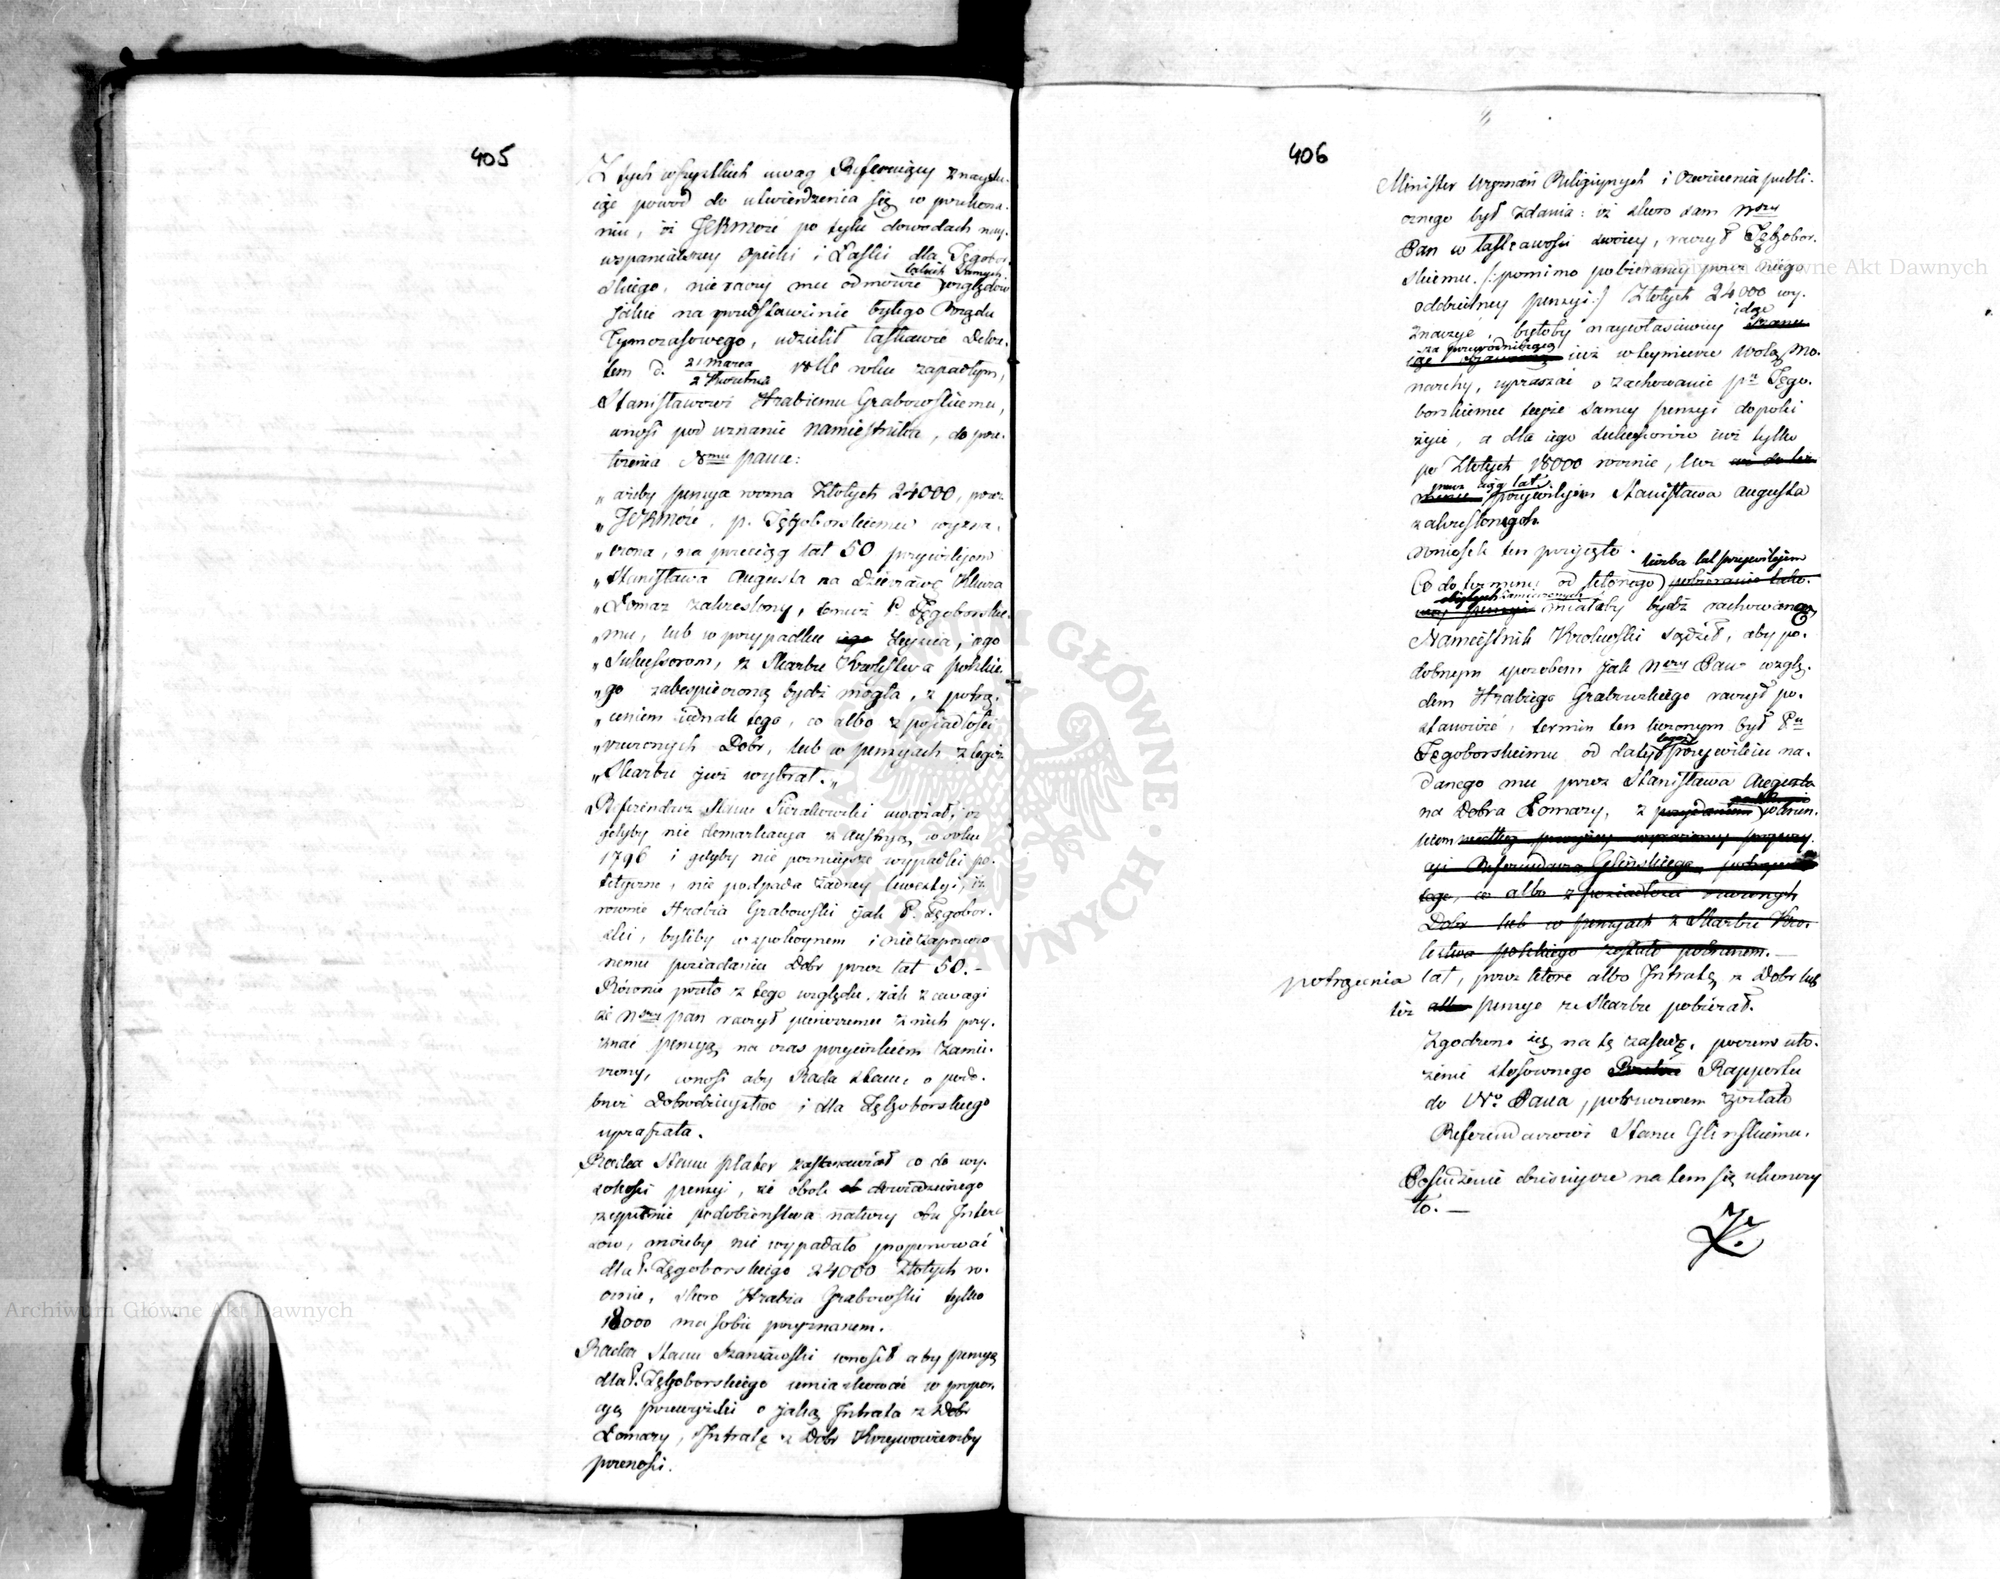 405
Z tych wszystkich uwag Referuiący znaydu-
iąc powod do utwierdzenia się w przekona-
niu, iż JCKMość po tylu dowodach nay-
wspanialszey opieki i Łaski dla Tęgobor-
skiego, nie raczy mu odmówić takich samych względów
jakie na przedstawienie byłego Rządu
Tymczasowego, udzielił łaskawie Dekre-
tem d. 21 Marca / 2 Kwietnia 1816 roku zapadłym,
Stanisławowi Hrabiemu Grabowskiemu,
wnosi pod uznanie Namiestnika, do prze-
łożenia Nmu Panu:
„ ażeby pensya roczna Złotych 24000, przez
„ JCKMość p. Tęgoborskiemu wyzna-
„ czona, na przeciąg lat 50 przywilejem
„ Stanisława Augusta na Dzierżawę Klucza
„ Łomaz zakreślony, temuż P. Tęgoborskie-
„ mu, lub w przypadku iego zeyscia, iego
„ Sukcessorom, z Skarbu Krolestwa polskie-
„ go zabespieczoną bydź mogła, z potrą-
„ ceniem iednak tego, co albo z posiadłości
„ rzeczonych Dobr, lub w pensyach z tegoż
„ Skarbu już wybrał. „
Referendarz Stanu Sierakowski uważał, iż
gdyby nie demarkacya z Austryą w roku
1796 i gdyby nie poźnieysze wypadki po-
lityczne, nie podpada żadney kwestyi, iż
rownie Hrabia Grabowski jak P. Tęgobor-
ski, byliby w spokoynem i niezaprzeczo-
nemu posiadaniu Dobr przez lat 50.-
Rownie przeto z tego względu, jak z uwagi
że Nszy Pan raczył pierwszemu z nich przy-
znać pensyą na czas przywilejem zamie-
rzony, wnosi aby Rada Stanu, o podo-
bneż Dobrodzieystwo i dla Tęgoborskiego
upraszała.
Radca Stanu Plater zastanawiał co do wy-
sokości pensyi, że obok dowiedzionego
zupełnie podobieństwa natury obu Intere-
sow, możeby nie wypadało proponować
dla P. Tęgoborskiego 24000 Złotych ro-
cznie, skoro Hrabia Grabowski tylko
18000 ma sobie przyznanem.
Radca Stanu Szaniawski wnosił aby pensyą
dla P. Tęgoborskiego umiarkować w propor-
cyą przewyżki o jaką Intrata z Dobr
Łomazy, Intratę z Dobr Krzywowierzby
przenosi.
406
Minister Wyznań Religiynych i Oświecenia publi-
cznego był zdania: iż skoro sam Nszy
Pan w łaskawości swoiey, raczył Tęgobor-
skiemu /: pomimo pobieraney przez niego
oddzielney pensyi :/ Złotych 24000 wy-
znaczyć, byłoby naywłaściwiey idąc
za przewodniczącą już w teymierze wolą Mo-
narchy, upraszać o zachowanie pu Tęgo-
borskiemu teyże samey pensyi dopoki
żyie, a dla iego Sukcessorow już tylko
po Złotych 18000 rocznie, lecz
przez ciąg lat przywilejem Stanisława Augusta
zakreślonych.
Wniosek ten przyięto.
Co do terminu od ktorego liczba lat przywilejem
zamierzonych miałaby bydź rachowaną
Namiestnik Krolewski sądził, aby po-
dobnym sposobem jak Nszy Pan wzglę-
dem Hrabiego Grabowskiego raczył po-
stanowić, termin ten liczonym był Pu
Tęgoborskiemu od daty przywileiu na-
danego mu przez Stanisława Augusta
na Dobra Łomazy, z
potrącenia lat, przez ktore albo Intratę z Dobr lub
też pensye ze Skarbu pobierał.
Zgodzono się na tę zasadę, poczem uło-
żenie stosownego Rapportu
do No Pana, poleconem zostało
Referendarzowi Stanu Glinskiemu.
Posiedzenie dzisieysze na tem się ukończy-
ło. —